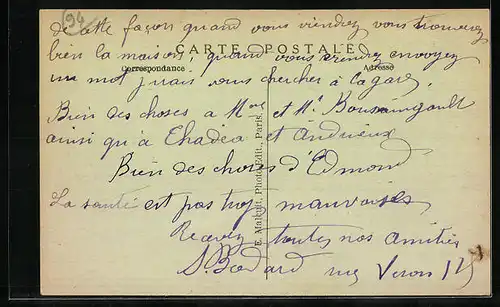 94
de cette façon quand vous viendrez vous trouverez
bien la maison, quand vous viendrez envoyez
CARTE POSTALE
Correspondance
Adresse
un mot j'irais vous chercher à la gare,
Bien des choses a Mme et Mr Boussingault
ainsi qu'à et Andrieux
Bien des choses d'Edmond
La santé est pas trop mauvaises
Recevez toutes nos amitiés
E. Malcuit, Photo-Edit., Paris.